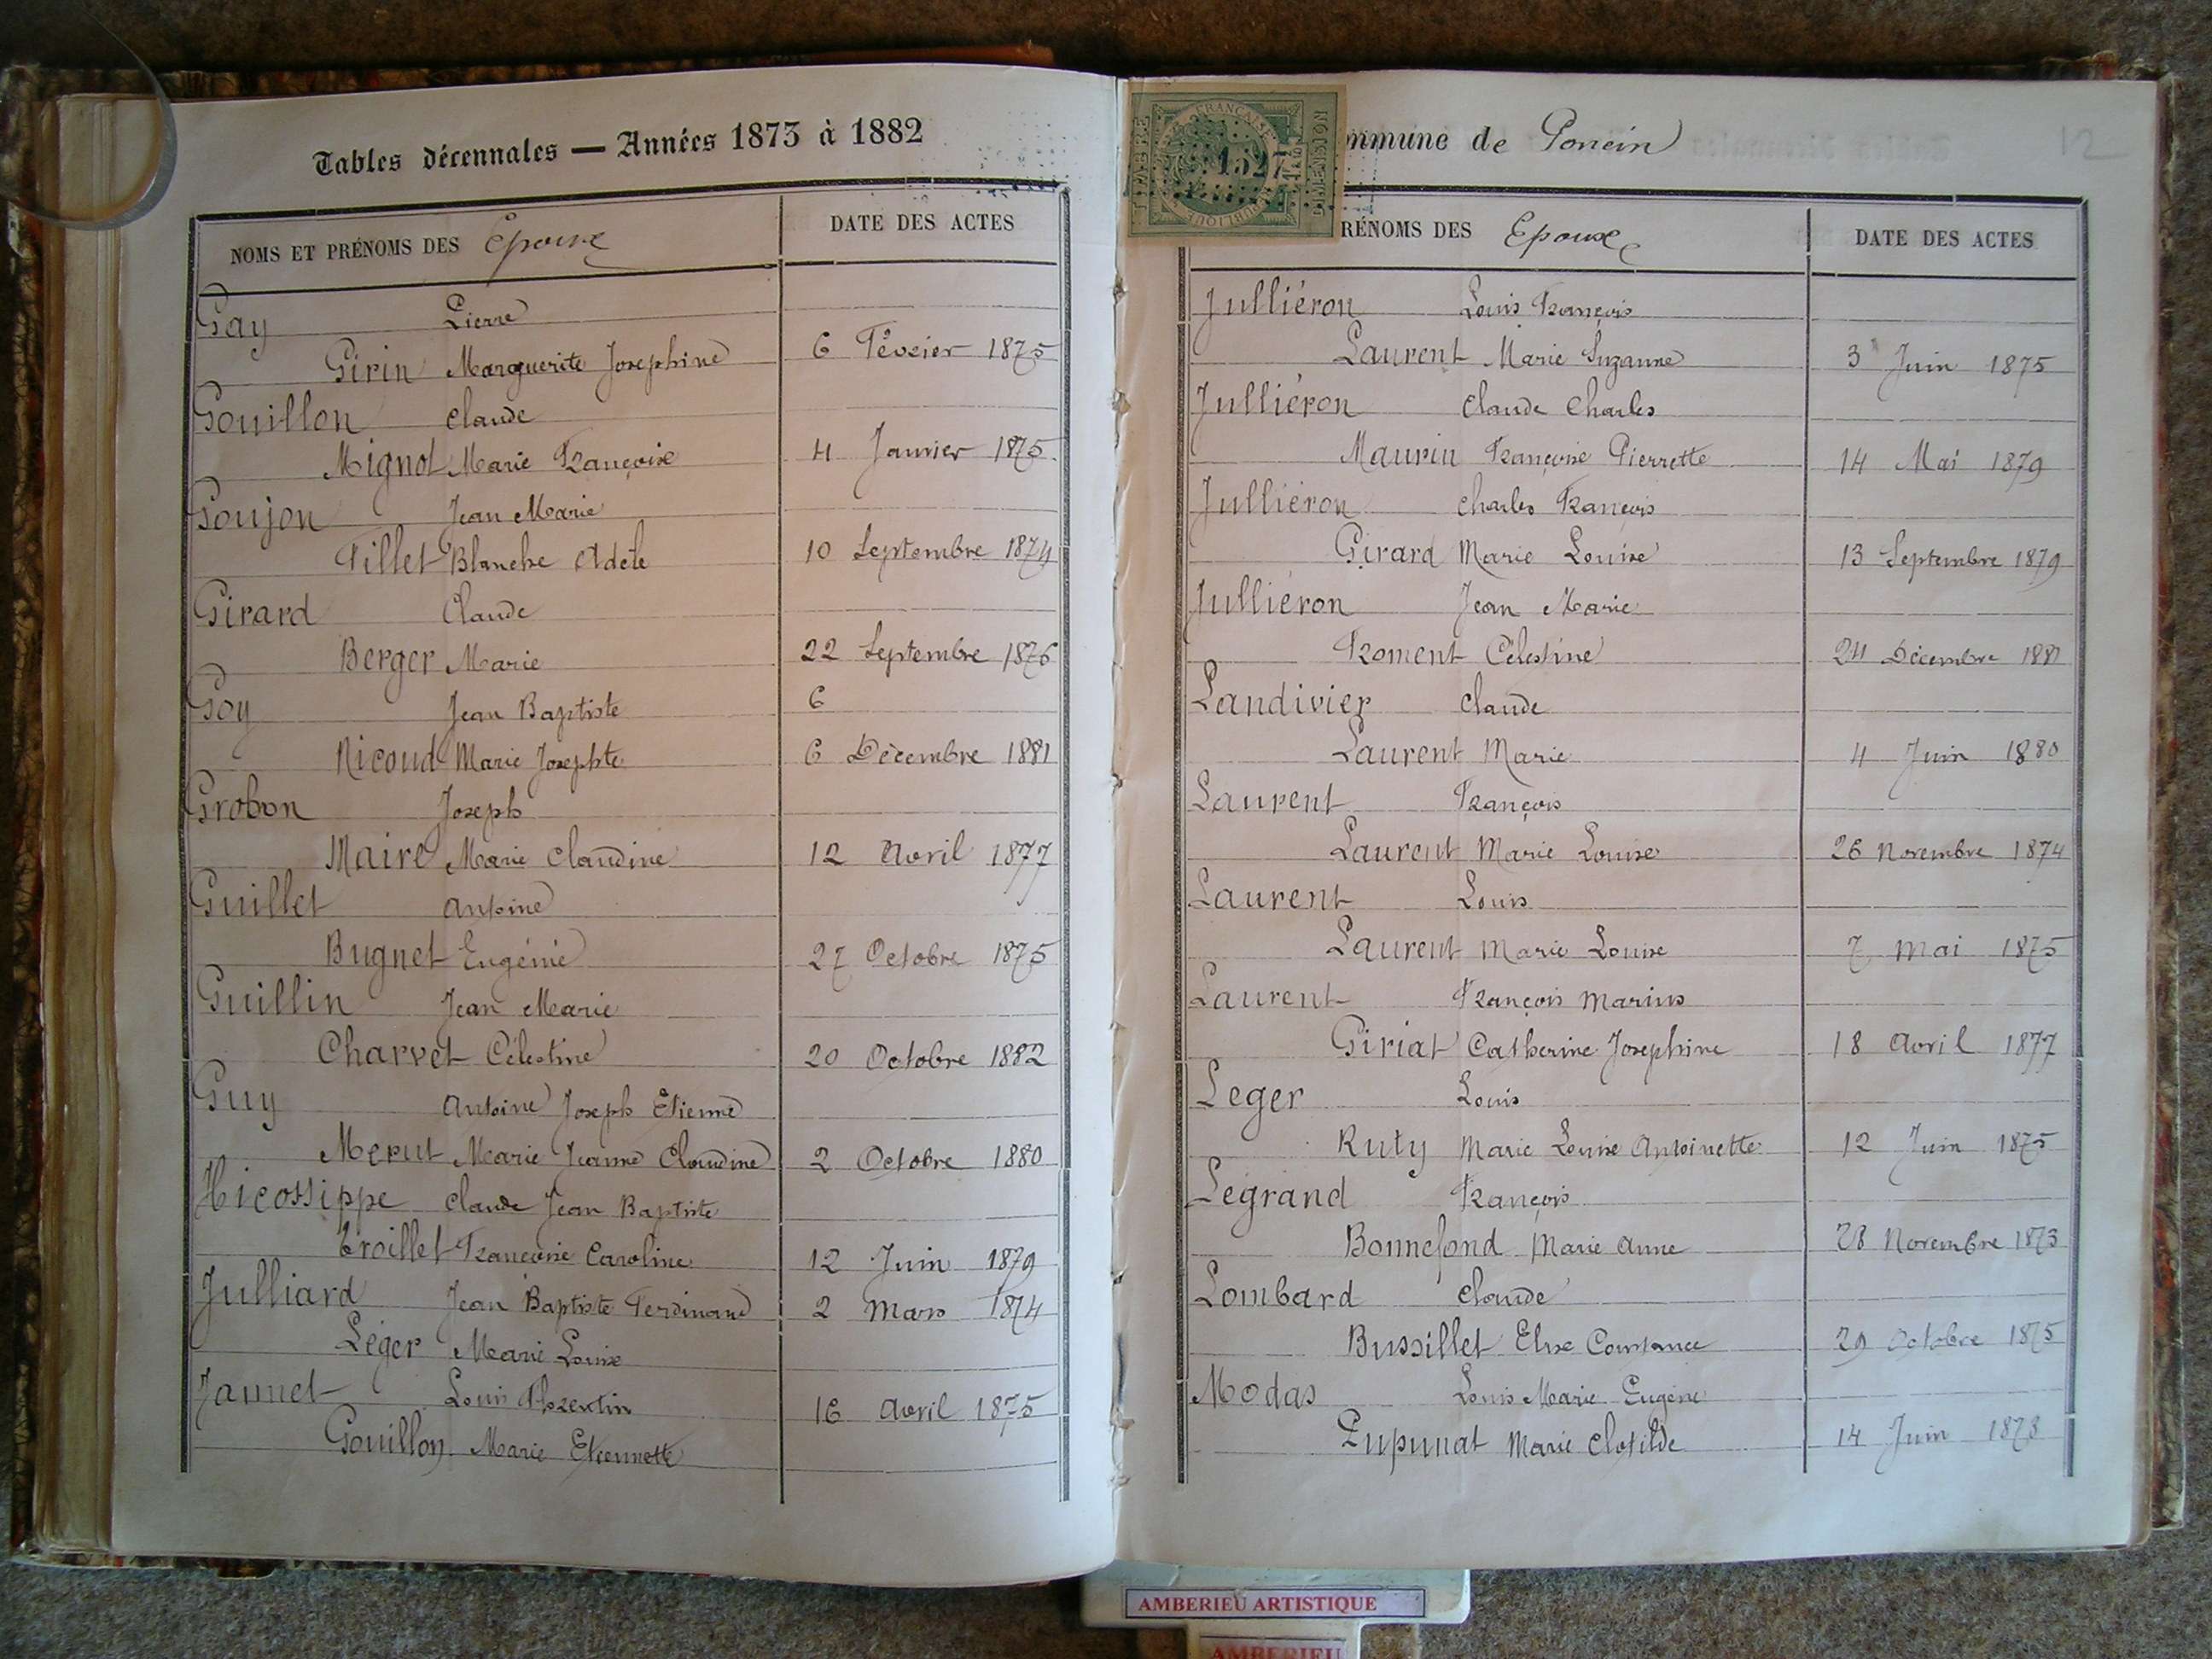 Tables décennales — Années 1873 à 1882
NOMS ET PRÉNOMS DES Epoux
DATE DES ACTES
Gay Pierre
Girin Marguerite Josephine 6 Février 1875
Gouillon Claude
Mignot Marie Françoise 4 Janvier 1875
Goujon Jean Marie
Tillet Blanche Adèle 10 Septembre 1874
Girard Claude
Berger Marie 22 Septembre 1876
Goy Jean Baptiste 6
Nicoud Marie Josephte 6 Décembre 1881
Grobon Joseph
Maire Marie Claudine 12 Avril 1877
Guillet Antoine
Bugnet Eugénie 27 Octobre 1875
Guillin Jean Marie
Charvet Célestine 20 Octobre 1882
Guy Antoine Joseph Etienne
Merut Marie Jeanne Claudine 2 Octobre 1880
Hicossippe Claude Jean Baptiste
Troillet Françoise Caroline 12 Juin 1879
Julliard Jean Baptiste Ferdinand 2 Mars 1874
Léger Marie Louise
Jannet Louis Florentin 16 Avril 1875
Gouillon Marie Etiennette
mmune de Poncin
12
TIMBRE
FRANÇAISE
DIMENSION
RÉPUBLIQUE
1527
RÉNOMS DES Epoux
DATE DES ACTES
Julliéron Louis François
Laurent Marie Suzanne 3 Juin 1875
Julliéron Claude Charles
Maurin Françoise Pierrette 14 Mai 1879
Julliéron Charles François
Girard Marie Louise 13 Septembre 1879
Julliéron Jean Marie
Froment Célestine 24 Décembre 1881
Landivier Claude
Laurent Marie 4 Juin 1880
Laurent François
Laurent Marie Louise 26 Novembre 1874
Laurent Louis
Laurent Marie Louise 7 Mai 1875
Laurent François Marius
Giriat Catherine Josephine 18 Avril 1877
Leger Louis
Ruty Marie Louise Antoinette 12 Juin 1875
Legrand François
Bonnefond Marie Anne 28 Novembre 1873
Lombard Claude
Bussillet Elise Constance 29 Octobre 1875
Modas Louis Marie Eugène
Pupunat Marie Clotilde 14 Juin 1878
AMBERIEU ARTISTIQUE
AMBERIEU